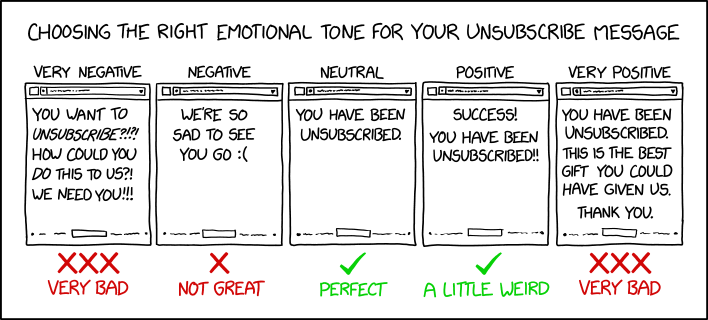 CHOOSING THE RIGHT EMOTIONAL TONE FOR YOUR UNSUBSCRIBE MESSAGE
VERY NEGATIVE
YOU WANT TO
UNSUBSCRIBE?!?!
HOW COULD YOU
DO THIS TO US?!
WE NEED YOU!!!
XXX
VERY BAD
NEGATIVE
WE'RE SO
SAD TO SEE
YOU GO :(
X
NOT GREAT
NEUTRAL
YOU HAVE BEEN
UNSUBSCRIBED.
✓
PERFECT
POSITIVE
SUCCESS!
YOU HAVE BEEN
UNSUBSCRIBED!!
✓
A LITTLE WEIRD
VERY POSITIVE
YOU HAVE BEEN
UNSUBSCRIBED.
THIS IS THE BEST
GIFT YOU COULD
HAVE GIVEN US.
THANK YOU.
XXX
VERY BAD